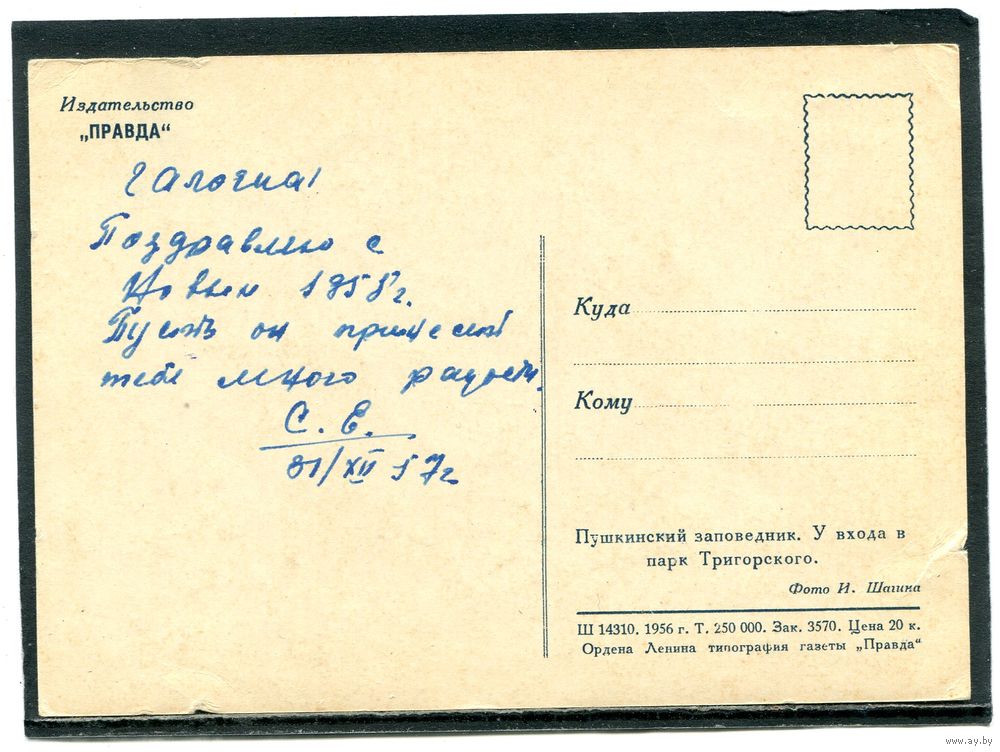 Издательство
„ПРАВДА“
Галочка!
Поздравляю с
Новым 1958 г.
Пусть он принесет
тебе много радости.
С. Е.
31/XII 57г
Куда
Кому
Пушкинский заповедник. У входа в
парк Тригорского.
Фото И. Шагина
Ш 14310. 1956 г. Т. 250 000. Зак. 3570. Цена 20 к.
Ордена Ленина типография газеты „Правда“
www.ay.by